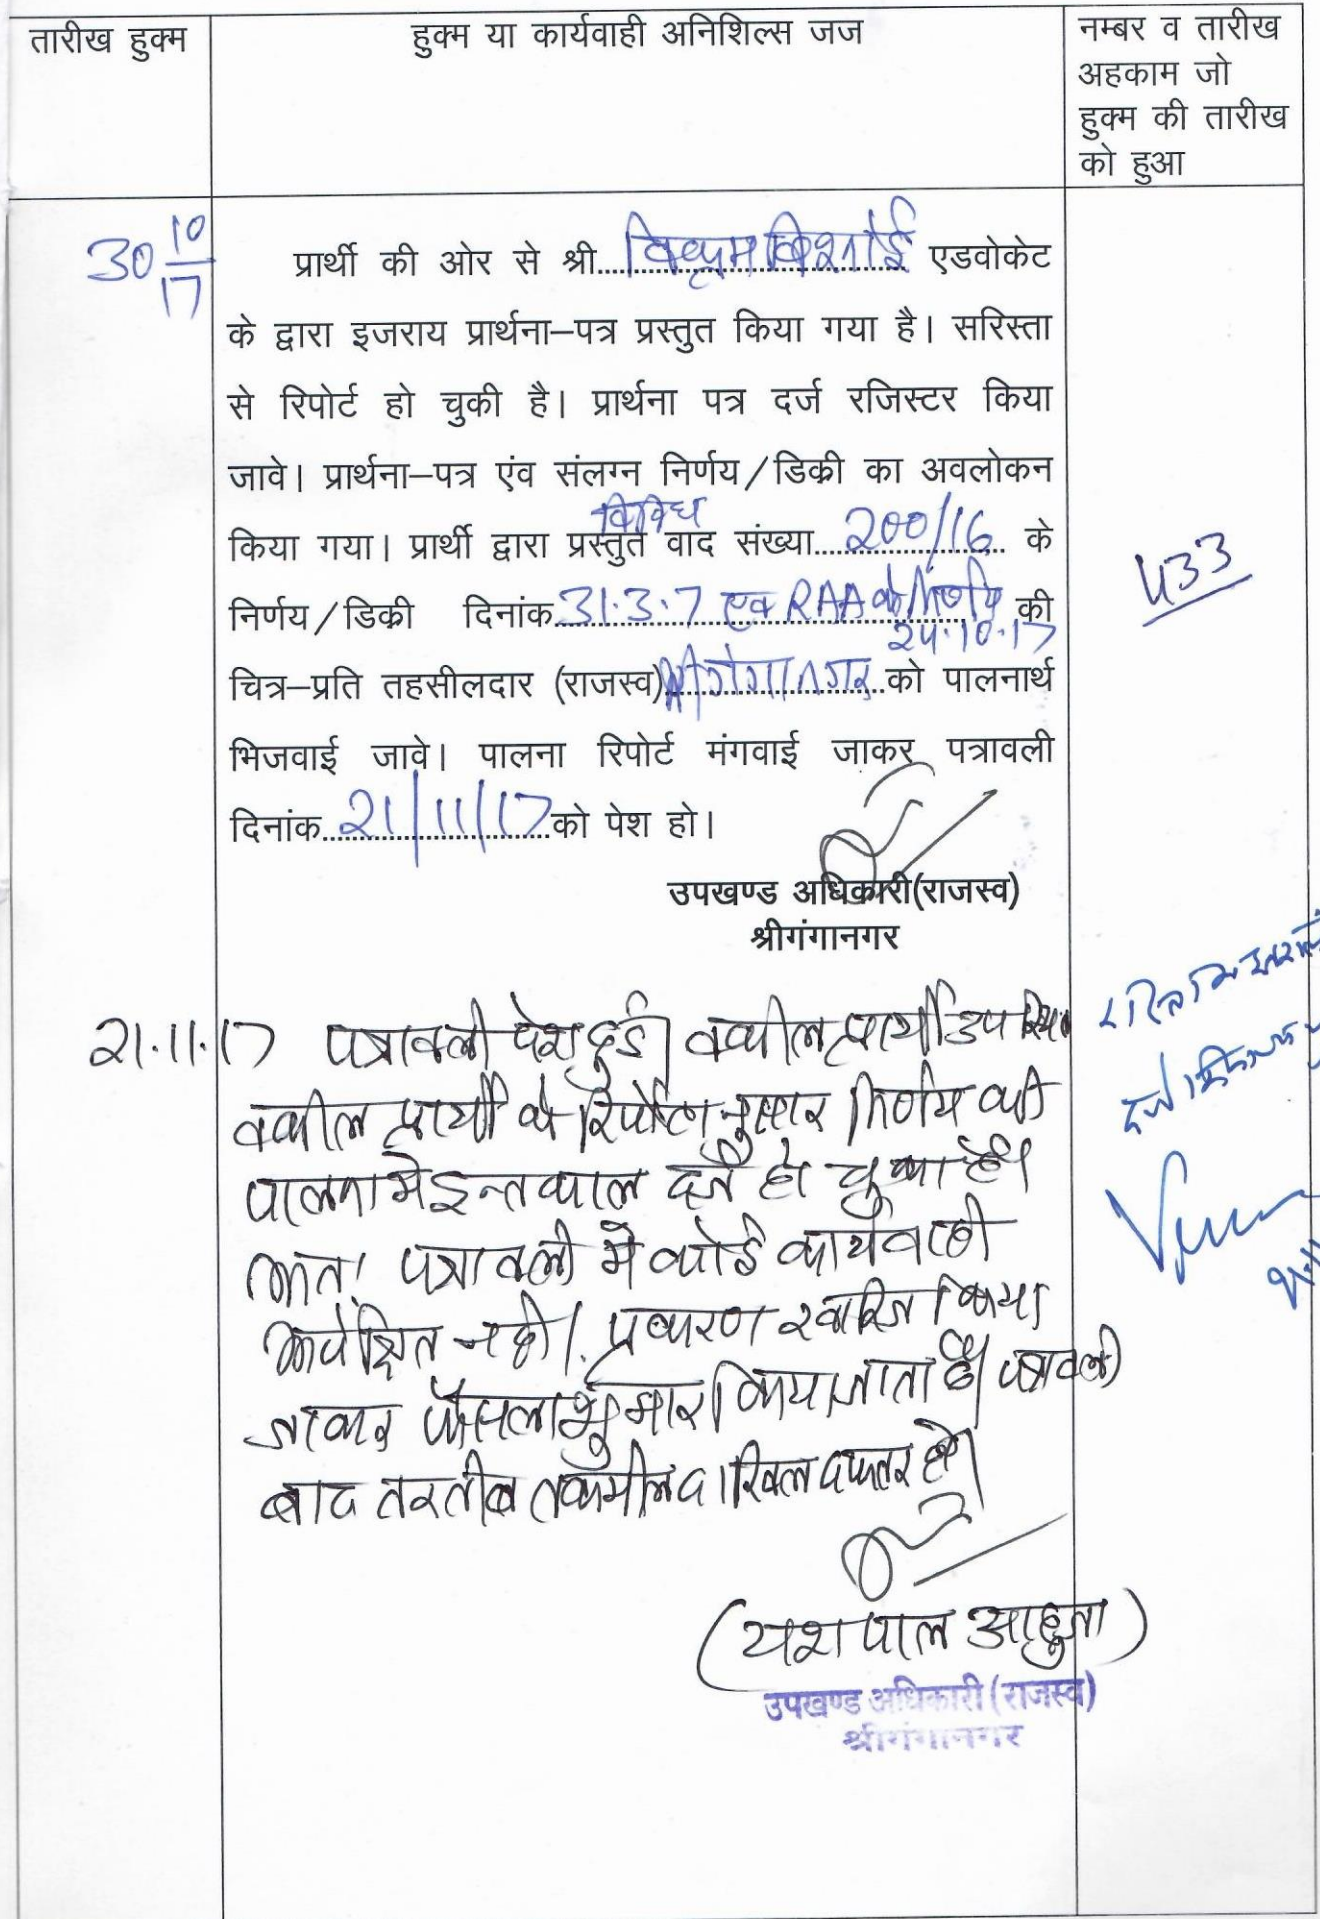 तारीख हुक्म
हुक्म या कार्यवाही अनिशिल्स जज
नम्बर व तारीख
अहकाम जो
हुक्म की तारीख
को हुआ
30 10/17
प्रार्थी की ओर से श्री विक्रम बिश्नोई एडवोकेट
के द्वारा इजराय प्रार्थना–पत्र प्रस्तुत किया गया है। सरिस्ता
से रिपोर्ट हो चुकी है। प्रार्थना पत्र दर्ज रजिस्टर किया
जावे। प्रार्थना–पत्र एंव संलग्न निर्णय/डिक्री का अवलोकन
विविध
किया गया। प्रार्थी द्वारा प्रस्तुत वाद संख्या 200/16 के
433
निर्णय/डिक्री दिनांक 31.3.7 एव RAA के निर्णय की
24.10.17
चित्र–प्रति तहसीलदार (राजस्व) श्रीगंगानगर को पालनार्थ
भिजवाई जावे। पालना रिपोर्ट मंगवाई जाकर पत्रावली
दिनांक 21/11/17 को पेश हो।
उपखण्ड अधिकारी(राजस्व)
श्रीगंगानगर
21.11.17 पत्रावली पेश हुई। वकील प्रार्थी उप
वकील प्रार्थी के रिपोर्टानुसार निर्णय की
पालना मे इन्तकाल दर्ज हो चुका है।
अतः पत्रावली मे कोई कार्यवाही
अपेक्षित नही। प्रकरण खारिज किया
जाकर फैसला शुमार किया जाता है। पत्रावली
बाद तरतीब तकमील दाखिल दफ्तर हो।
(यशपाल आहुजा)
उपखण्ड अधिकारी (राजस्व)
श्रीगंगानगर